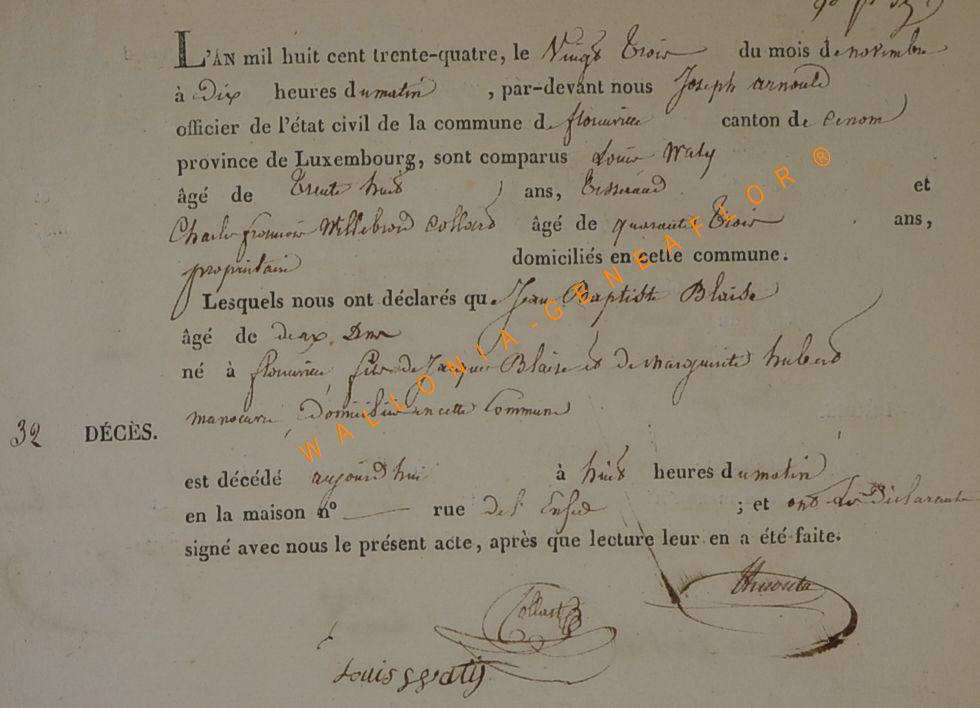 L'AN mil huit cent trente-quatre, le Vingt Trois du mois de novembre
à Dix heures du matin, par-devant nous Joseph arnould
officier de l'état civil de la commune de florenville canton de
province de Luxembourg, sont comparus Louis Waty
âgé de Trente huit ans, Tisserand et
Charle françois Willebrord Collard âgé de quarante Trois ans,
propriétaire domiciliés en cette commune.
Lesquels nous ont déclarés que Jean Baptiste Blaise
âgé de deux Ans
né à florenville fils de Jacques Blaise et de Marguerite hubert
manoeuvre, domicilié en cette Commune
32 DÉCÈS.
est décédé aujourd'hui à huit heures du matin
en la maison nº — rue de l' ; et ont Les déclarants
signé avec nous le présent acte, après que lecture leur en a été faite.
Collard
Louis Waty
WALLONIA-GENEAFLOR®